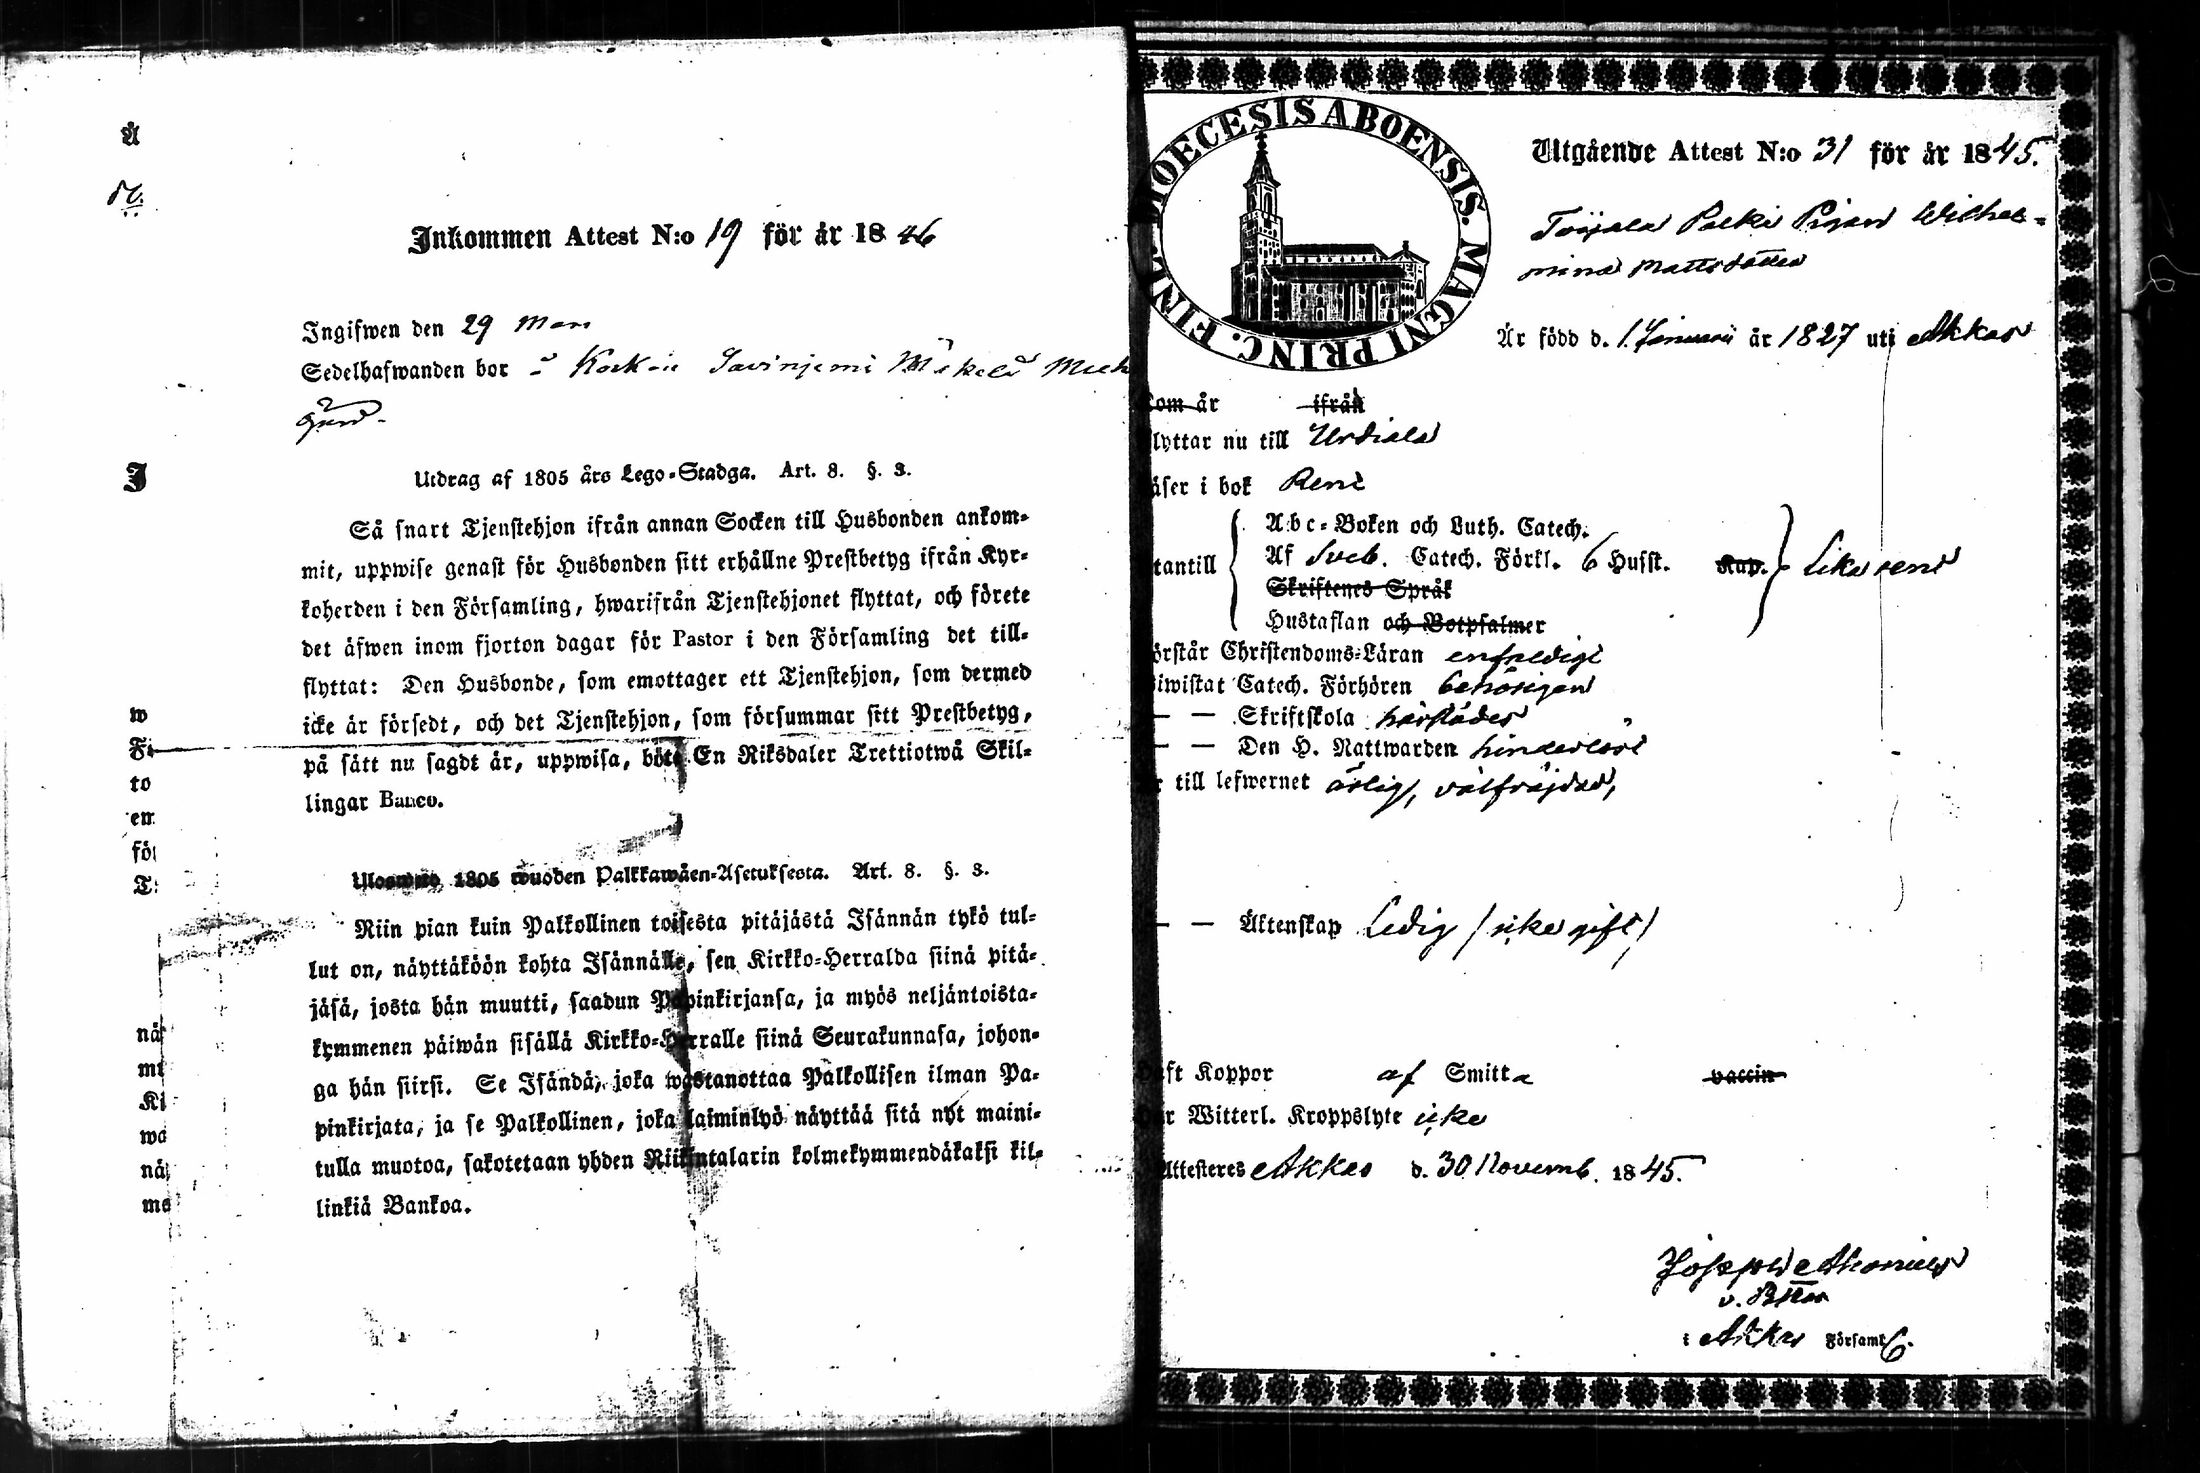 Å
Inkommen Attest N:o 19 för år 1846
Ingifwen den 29 Mars
Sedelhafwanden bor i
J
Utdrag af 1805 års Lego-Stadga. Art. 8. §. 3.
Så snart Tjenstehjon ifrån annan Socken till Husbonden ankom-
mit, uppwise genast för Husbonden sitt erhållne Prestbetyg ifrån Kyr-
koherden i den Församling, hwarifrån Tjenstehjonet flyttat, och förete
det äfwen inom fjorton dagar för Pastor i den Församling det till-
flyttat: Den Husbonde, som emottager ett Tjenstehjon, som dermed
icke är försedt, och det Tjenstehjon, som försummar sitt Prestbetyg,
på sätt nu sagdt är, uppwisa, böte En Riksdaler Trettiotwå Skil-
lingar Banco.
w
to
em
T
1805 wuoden Palkkawäen-Asetuksesta. Art. 8. §. 3.
Niin pian kuin Palkollinen toisesta pitäjästä Isännän tykö tul-
lut on, näyttäköön kohta Isännälle, sen Kirkko-Herralda siinä pitä-
jäsä, josta hän muutti, saadun Papinkirjansa, ja myös neljäntoista-
kymmenen päiwän sisällä Kirkko-Herralle siinä Seurakunnasa, johon-
ga hän siirsi. Se Isändä, joka wastanottaa Palkollisen ilman Pa-
pinkirjata, ja se Palkollinen, joka laiminlyö näyttää sitä nyt maini-
tulla muotoa, sakotetaan yhden Riikintalarin kolmekymmendäkaksi kil-
linkiä Bankoa.
nä
Ki
wa
nä
DIOECESIS ABOENSIS. MAGNI PRINC. FINL.
Utgående Attest N:o 31 för år 1845.
Toijala Pelki Pigan Wilhel-
mina Mattsdotter
Är född d. 1 Januari år 1827 uti Akkas
Kom år ifrån
flyttar nu till Urdiala
läser i bok Rent
Abc-Boken och Luth. Catech.
utantill Af Sveb. Catech. Förkl. 6 Husst. Kap. Lika rent
Skriftenes Språk
Hustaflan och Botpsalmer
förstår Christendoms-Läran enfaldigt
Biwistat Catech. Förhören behörigen
— — Skriftskola härstädes
— — Den H. Nattwarden hinderlöst
Är till lefwernet ärlig, välfräjdad,
— — Äktenskap Ledig /icke gift/
Haft Koppor af Smitta vaccin
Har Witterl. Kroppslyte icke
Attesteres Akkas d. 30 Novemb. 1845.
v. Pastor
i Akkas Församl.